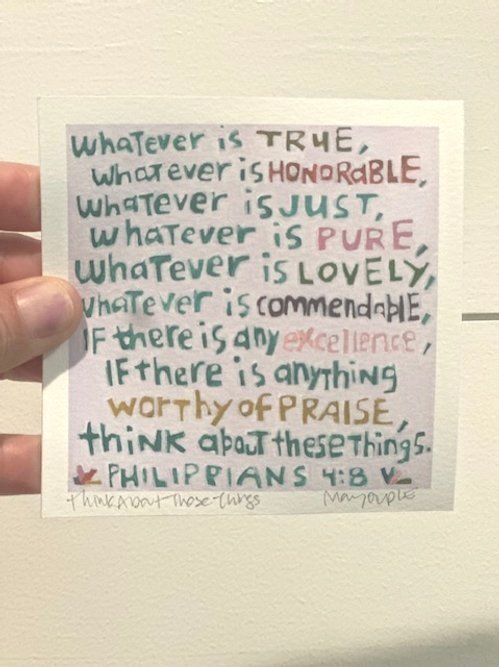 whatever is TRUE,
whatever is HONORaBLE,
whatever is JUST,
whatever is PURE,
whatever is LOVELY,
whatever is commendablE,
IF there is any excellence,
IF there is anything
worthy of PRAISE,
think about these Things.
PHILIPPIANS 4:8
Think About Those Things